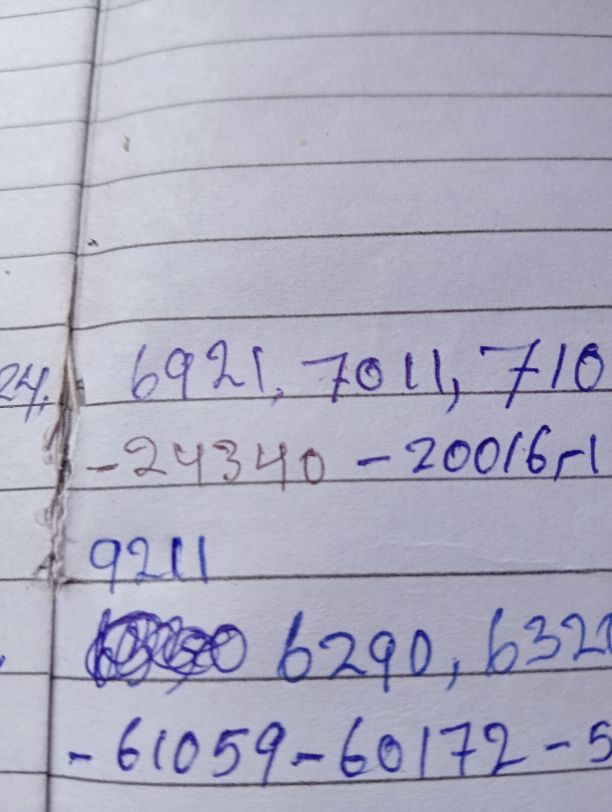 24. 6921, 7011, 710
-24340 - 20016, -1
9211
6290, 632
- 61059 - 60172 - 5